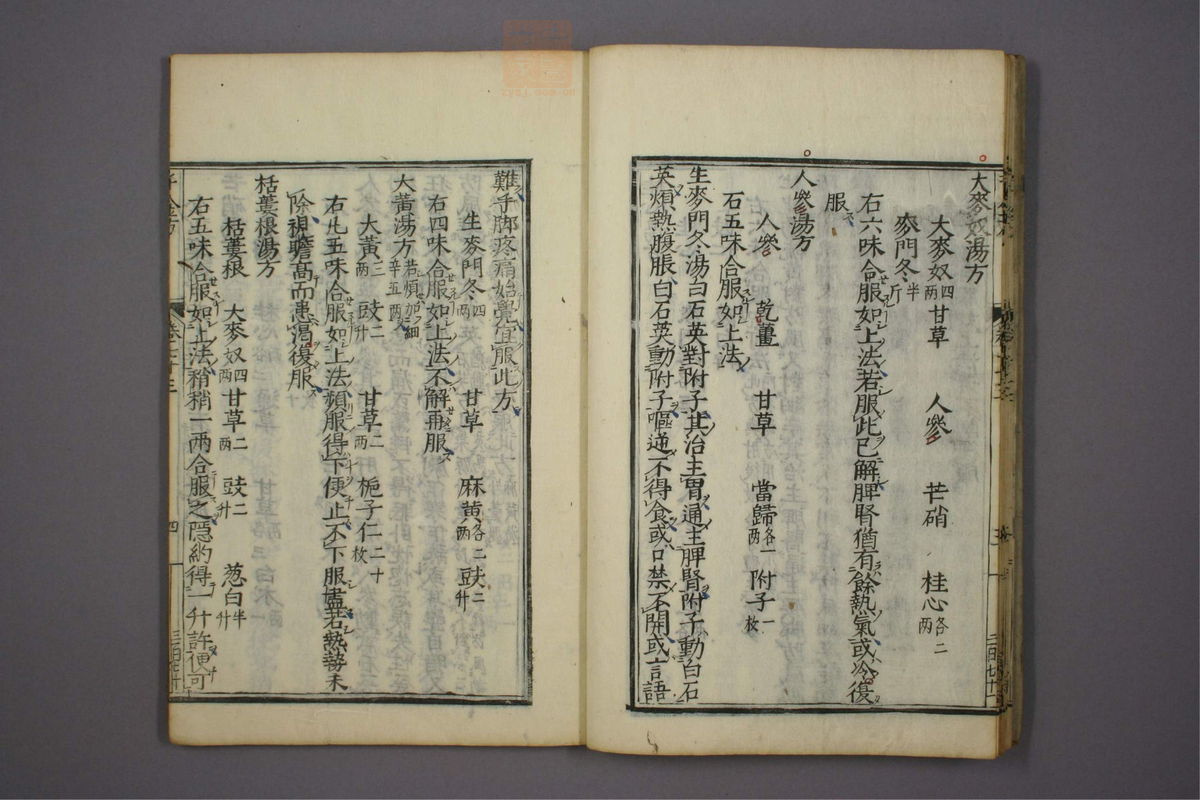 大麥奴湯方
大麥奴四兩 甘草 人參 芒硝 桂心各二兩
麥門冬半斤
右六味合服如上法若服此已解脾腎猶有餘熱氣或冷復
服
人參湯方
人參 乾薑 甘草 當歸各一兩 附子一枚
右五味合服如上法
生麥門冬湯白石英對附子其治主胃通主脾腎附子動白石
英煩熱腹脹白石英動附子嘔逆不得食或口禁不開或言語
難手脚疼痛始覺宜服此方
生麥門冬四兩 甘草 麻黃各二兩 豉二升
右四味合服如上法不解再服
大黃湯方若煩加細辛五兩
大黃三兩 豉二升 甘草二兩 梔子仁二十枚
右此五味合服如上法頻服得下便止不下服盡若熱勢未
除視瞻高而患渴復服
栝蔞根湯方
栝蔞根 大麥奴四兩 甘草二兩 豉二升 葱白半升
右五味合服如上法稍稍一兩合服之隱約得一升許便可
四